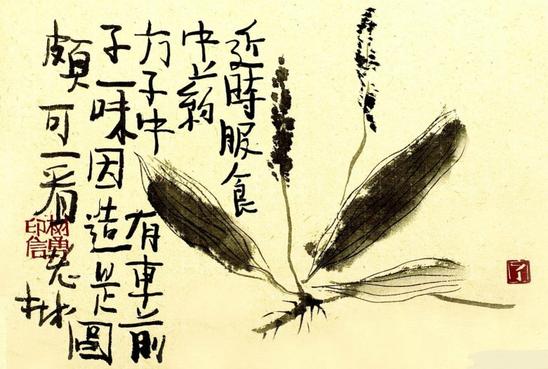 近時服食
中药
方子中有車前
子一味因造是圖
頗可一看老树
树勇印信
了